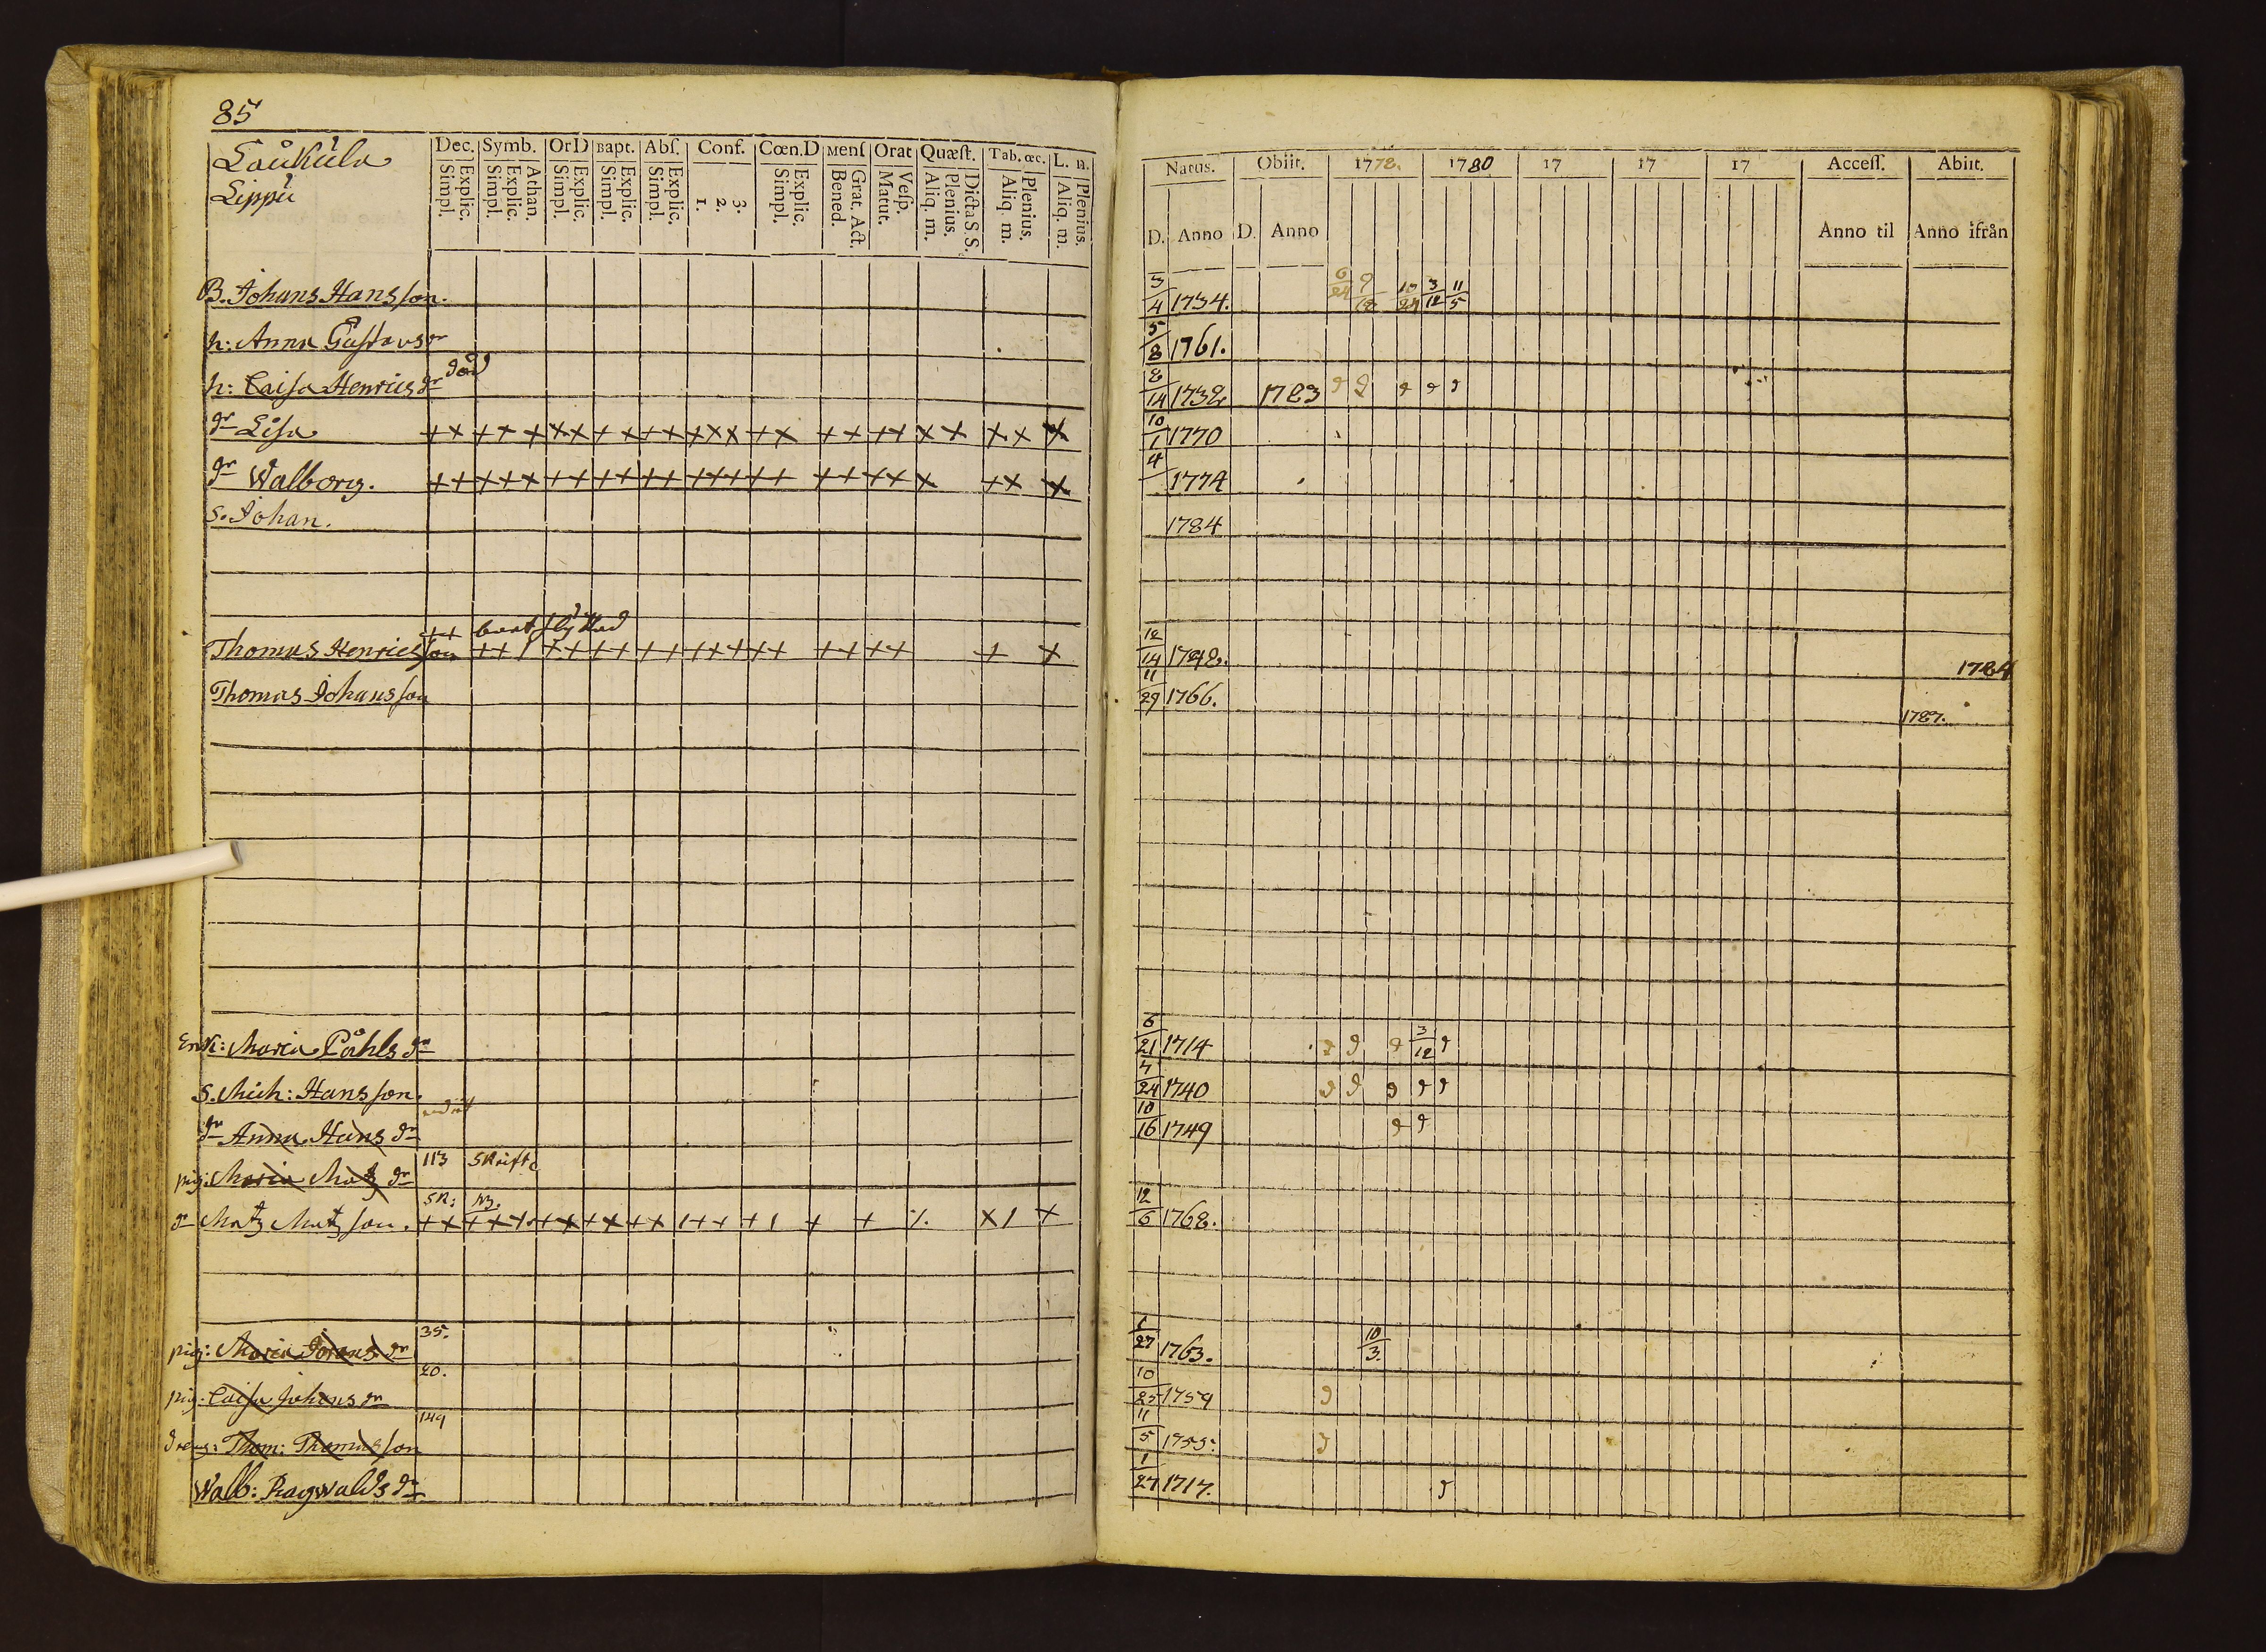 85
Laukula
Lippu
Dec. Symb. OrD Bapt. Abſ. Conf. Cœn.D Menſ Orat Quæſt. Tab. œc. L. n.
Explic. Simpl. Athan. Explic. Simpl. Explic. Simpl. Explic. Simpl. Explic. Simpl. 3. 2. 1. Explic. Simpl. Grat. Act. Bened. Veſp. Matut. Dicta S.S. Plenius. Aliq. m. Plenius. Aliq. m. Plenius. Aliq. m.
Natus. Obiit. 1778. 1780 17 17 17 Acceſſ. Abiit.
D. Anno D. Anno Anno til Anno ifrån
B. Johans Hansſon. 3/4 1734. 6/24 10/24 3/12 11/5
h: Anna Gustavs dr 5/8 1761.
h: Caisa Henrics dr död 8/14 1738 1783
dr Lisa ++ +++ ++ ++ ++ +++ ++ ++ ++ ++ ++ + 10/1 1770
dr Walborg. ++ +++ ++ ++ ++ +++ ++ ++ ++ + ++ + 4 1774
S. Johan. 1784
++ bortflyttad
Thomas Henricsſon ++/ ++ ++ ++ +++ ++ ++ ++ + + 12/14 1748. 1784
Thomas Johansſon 11/29 1766. 1787.
Enk: Maria Påhls dr 6/21 1714 3/12
S. Mich: Hansſon. 4/24 1740
dr Anna Hans dr 10/16 1749
pig: Maria Mats dr 113 Skrifts
Sk: 113.
dr Mats Matsſon. ++ +++ ++ ++ ++ /++ +/ + + % +/ + 12/6 1768.
pig: Maria Johans dr 35. 1/27 1763. 10/3.
pig: Caisa Johans dr 20. 10/25 1759
dreng: Thom: Thomasſon 149 11/5 1755.
Walb: Ragwalds dr 1/27 1717.